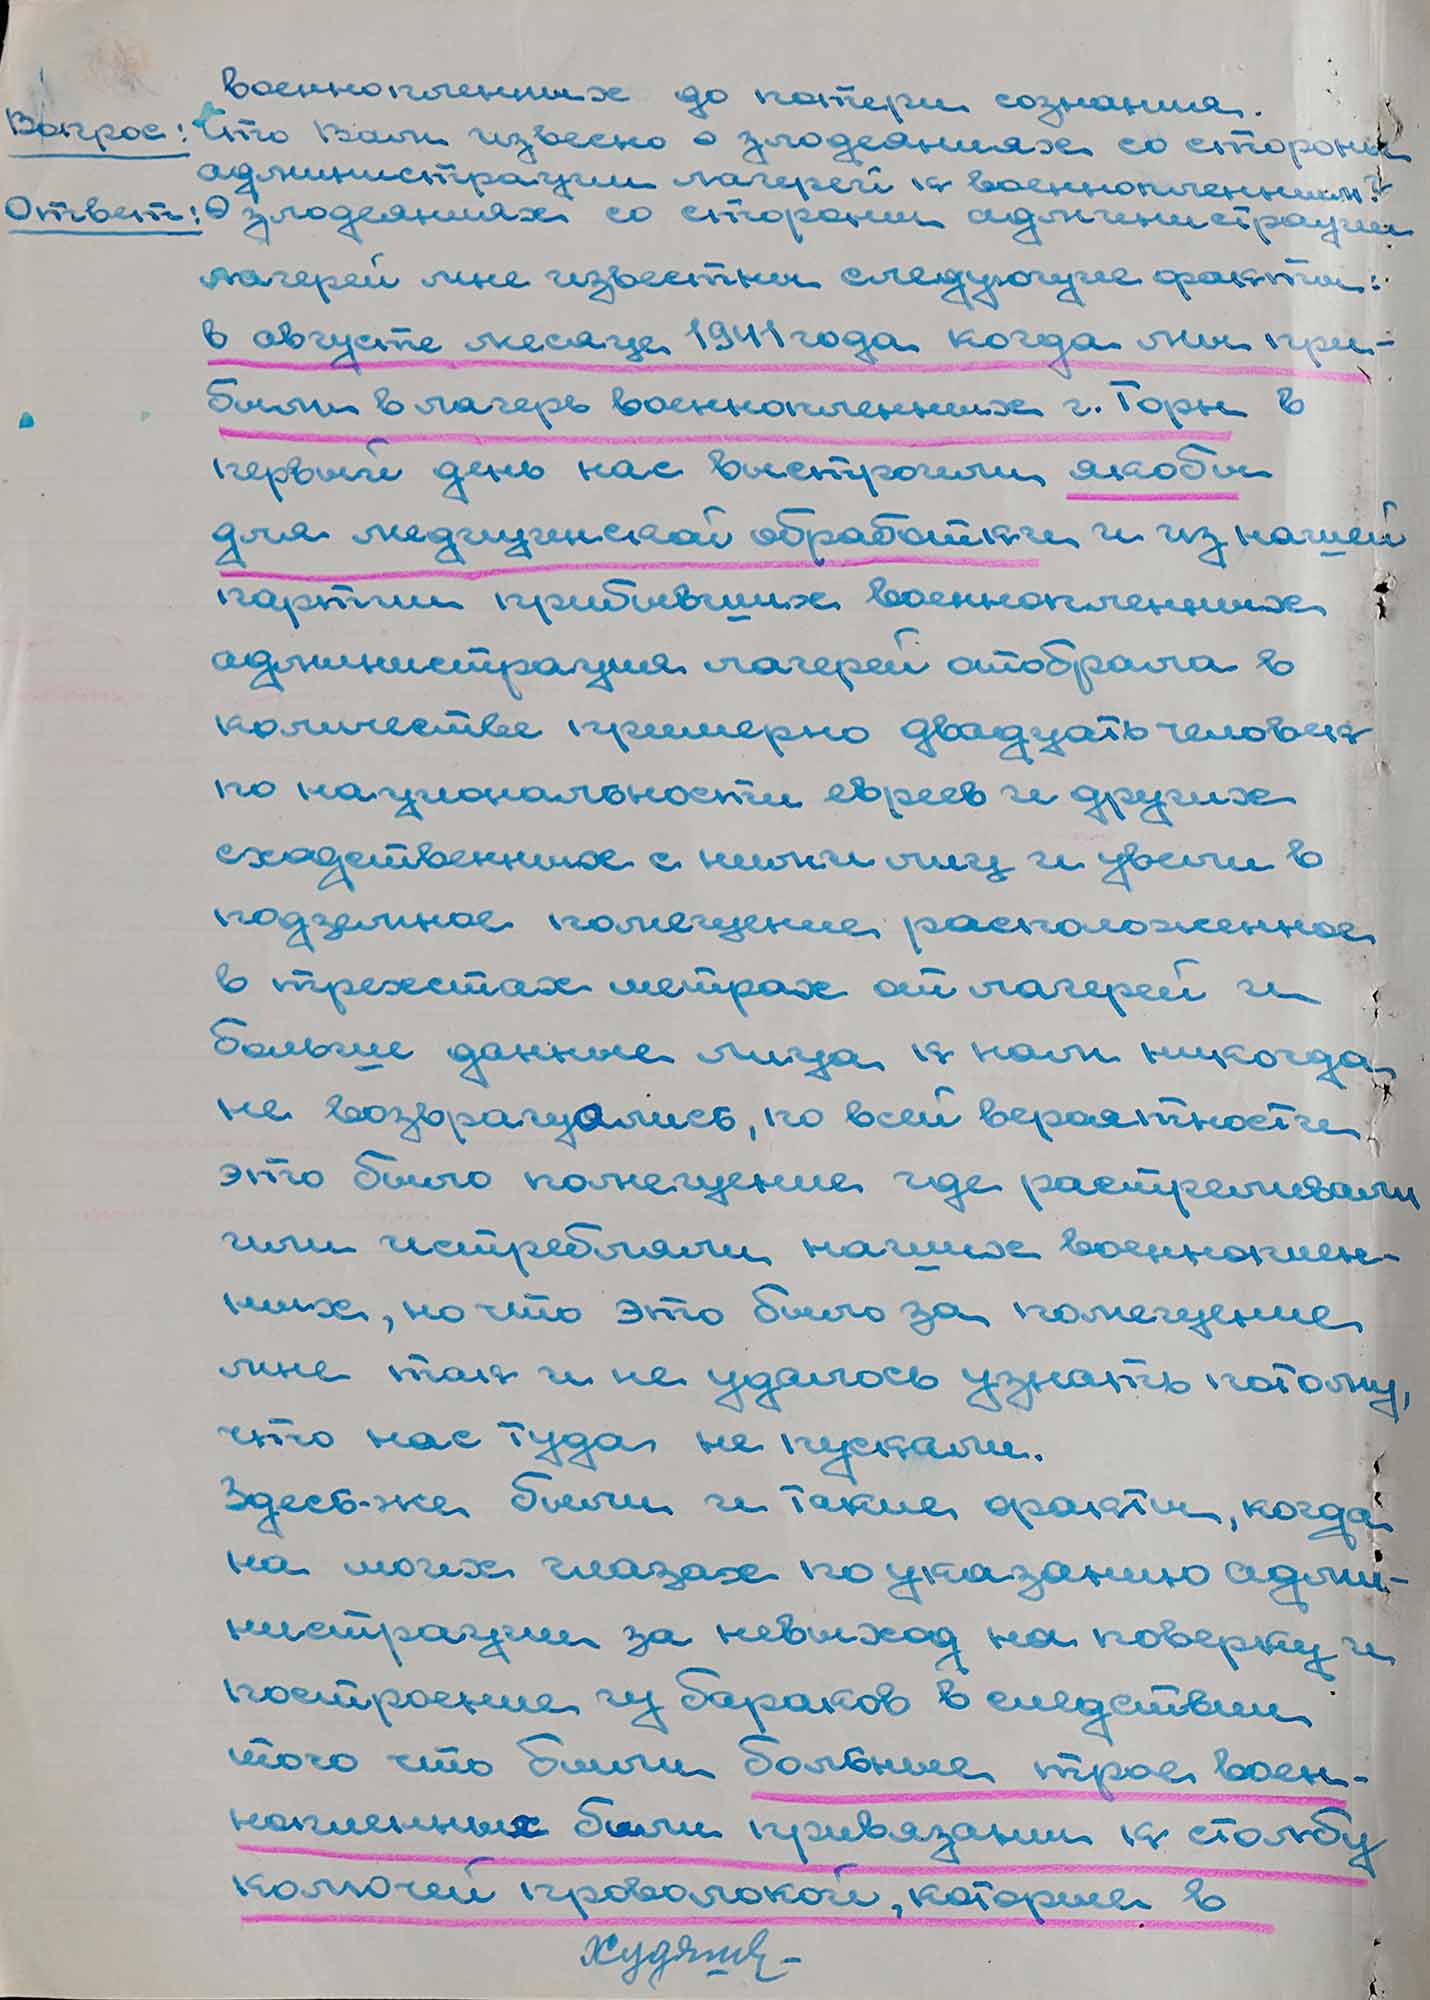 военнопленных до потери сознания.
Вопрос: Что Вам извесно о злодеяниях со стороны
администрации лагерей к военнопленным?
Ответ: О злодеяниях со стороны администрации
лагерей мне известны следующие факты:
в августе месяце 1941 года когда мы при-
были в лагерь военнопленных г. Торн в
первый день нас выстроили якобы
для медицинской обработки и из нашей
партии прибывших военнопленных
администрация лагерей отобрала в
количестве примерно двадцать человек
по национальности евреев и других
сходственных с ними лиц и увели в
подземное помещение расположенное
в трехстах метрах от лагерей и
больше данные лица к нам никогда
не возвращались, по всей вероятности
это было помещение где растреливали
или истребляли наших военноплен-
ных, но что это было за помещение
мне так и не удалось узнать потому,
что нас туда не пускали.
Здесь-же были и такие факты, когда
на моих глазах по указанию адми-
нистрации за невыход на поверку и
построение из бараков в следствии
того что были больные трое воен-
нопленных были привязаны к столбу
колючей проволокой, которые в